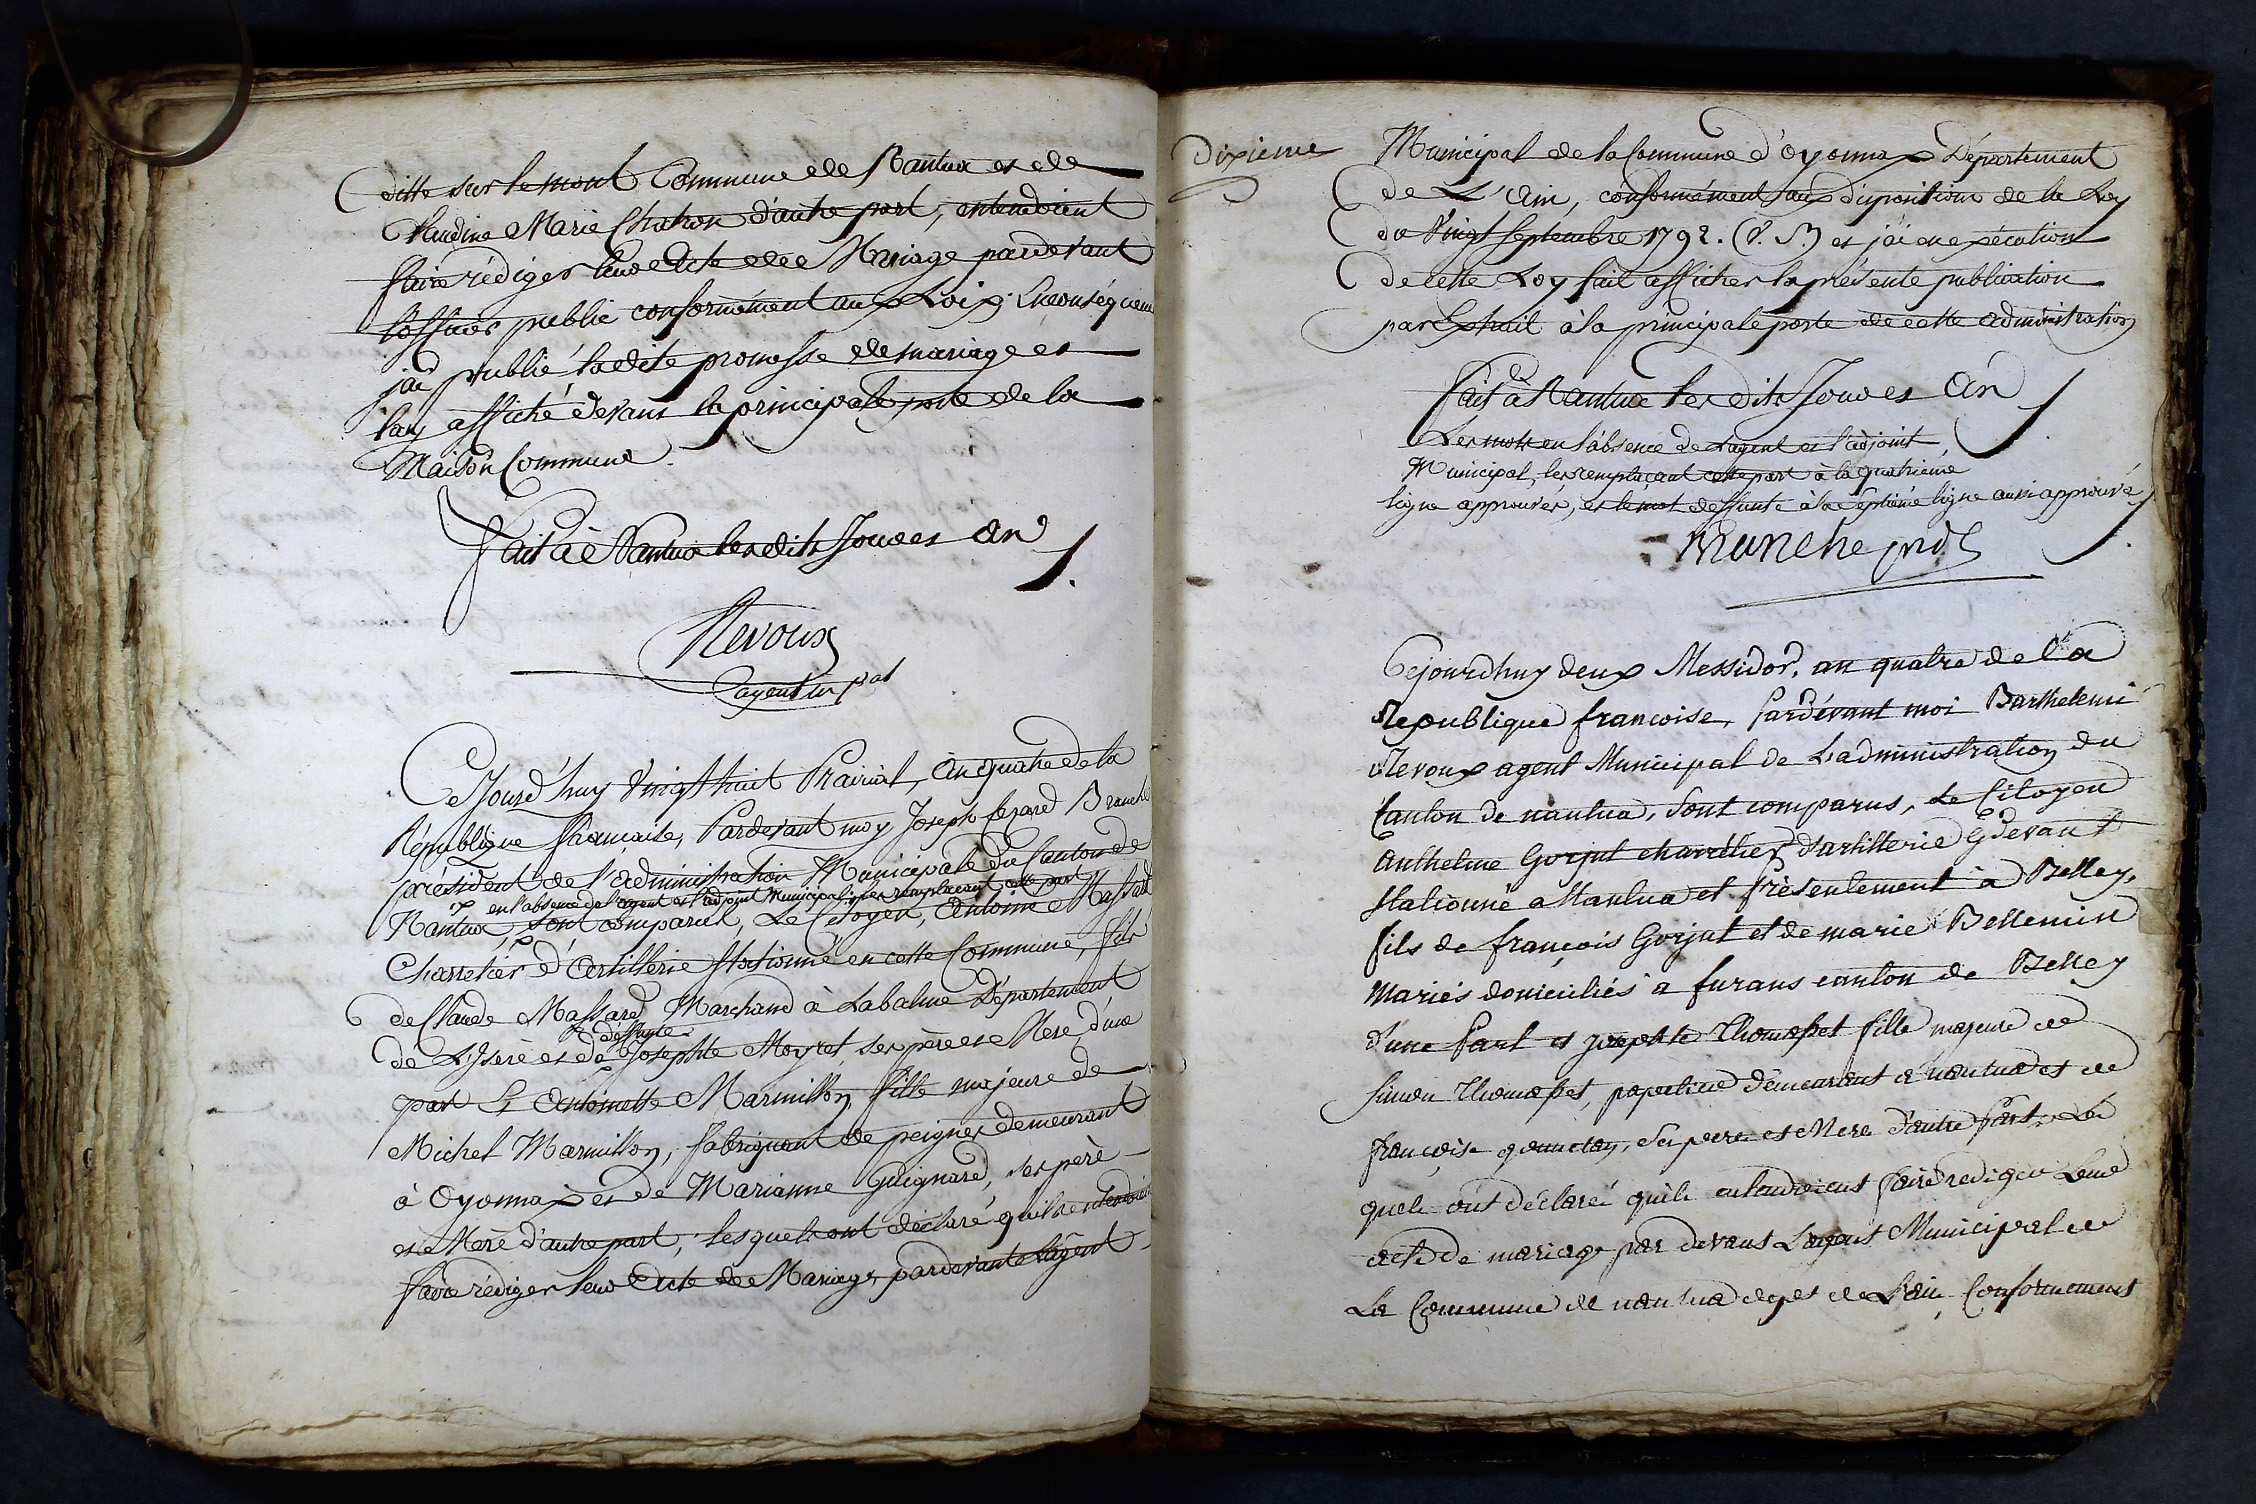 ditte sur le mont Commune de Nantua et de
Claudine Marie Chatron d'autre part, entendoient
faire rédiger leur Acte de Mariage pardevant
l'officier public conformément aux Loix. En conséquence
jai publié ladite promesse de mariage et
lay affiché devant la principale porte de la
Maison Commune.
fait à Nantua les dits Jour et an
Nevoux
agent mpal
Cejourd'huy Vingt huit Prairial, an quatre de la
République française, Pardevant moy Joseph Branche
président de l'administration Municipale du Canton de
en l'absence de l'agent et l'adjoint Municipal, les remplaçant cette part
Nantua, sont comparut, Le Citoyen, Antoine Massard
Charretier d'Artillerie stationné en cette Commune, fils
de Claude Massard Marchand à Labalme Département
deffunte
de L'Isère et de Josephte Moyret ses père et Mere, d'une
part Et Antoinette Marmillon, fille majeure de
Michel Marmillon, fabriquant de peignes demeurant
à Oyonnax et de Marianne Guignard, ses père
et Mere d'autre part, lesquels ont déclaré qu'ils entendoient
faire rédiger leur Acte de Mariage, pardevant l'agent
Dixieme
Municipal de la Commune d'Oyonnax Département
de L'Ain, conformément aux dispositions de la Loy
du Vingt Septembre 1792. (V. S.) et j'ai en exécution
de cette Loy fait afficher la présente publication
par Extrait à la principale porte de cette administration
fait à Nantua les dits Jour et an
Les mots en l'absence de l'agent et l'adjoint
Municipal, les remplaçant cette part à la quatrieme
ligne approuvés, et le mot deffunte à la septieme ligne aussi approuvé
Branche prdt
Cejourdhuy deux Messidor, an quatre de la
Republique françoise, Pardévant moi Barthelemi
Nevoux agent Municipal de L'administration du
Canton de nantua, sont comparus, Le Citoyen
Anthelme Gorjut charrétier d'artillerie Cydevant
stationné a Nantua et présentement à Belley,
fils de françois Gorjut et de marie Bellemin
mariés domiciliés a furans canton de Belley
d'une Part et josephte Thomasset fille majeure de
Simon Thomasset, papetier demeurant a nantua et de
françoise, ses pere et Mere d'autre part, Les
quels ont déclaré quils entendoient faire rediger Leur
acte de mariage par devant Lagent Municipal de
La Commune de nantua dept de L'ain, Conformement